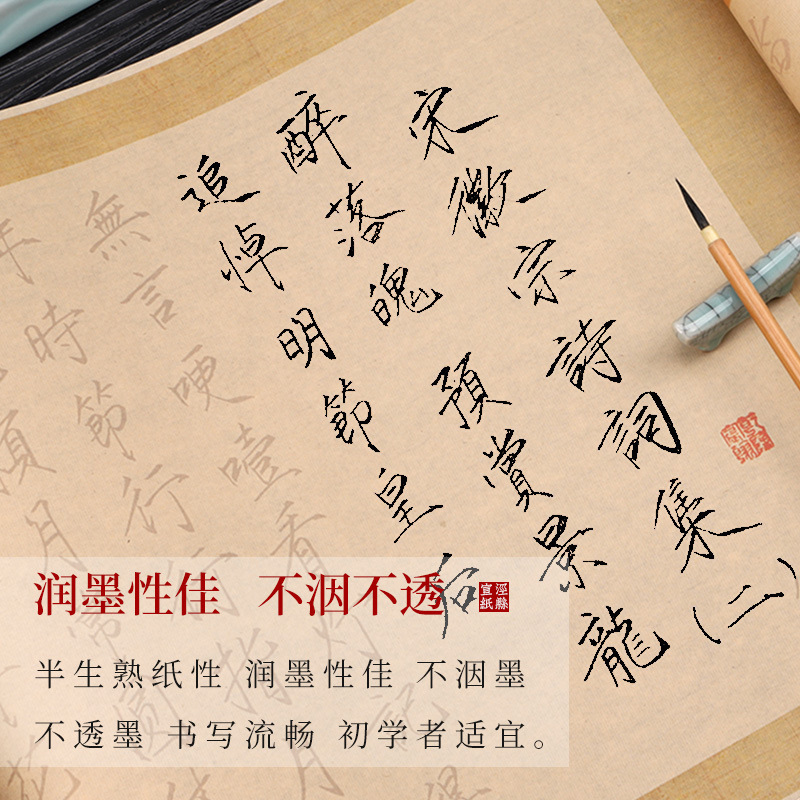 宋徽宗詩詞集(二)
醉落魄 預賞景龍
追悼明節皇后
無言哽噎看
年時節行行指月
願月常圓
润墨性佳 不洇不透
涇縣宣紙
半生熟纸性 润墨性佳 不洇墨
不透墨 书写流畅 初学者适宜。